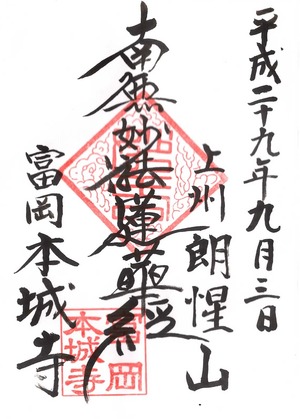 平成二十九年九月三日
上州 朗惺山
南無妙法蓮華経
富岡本城寺
富岡
本城寺